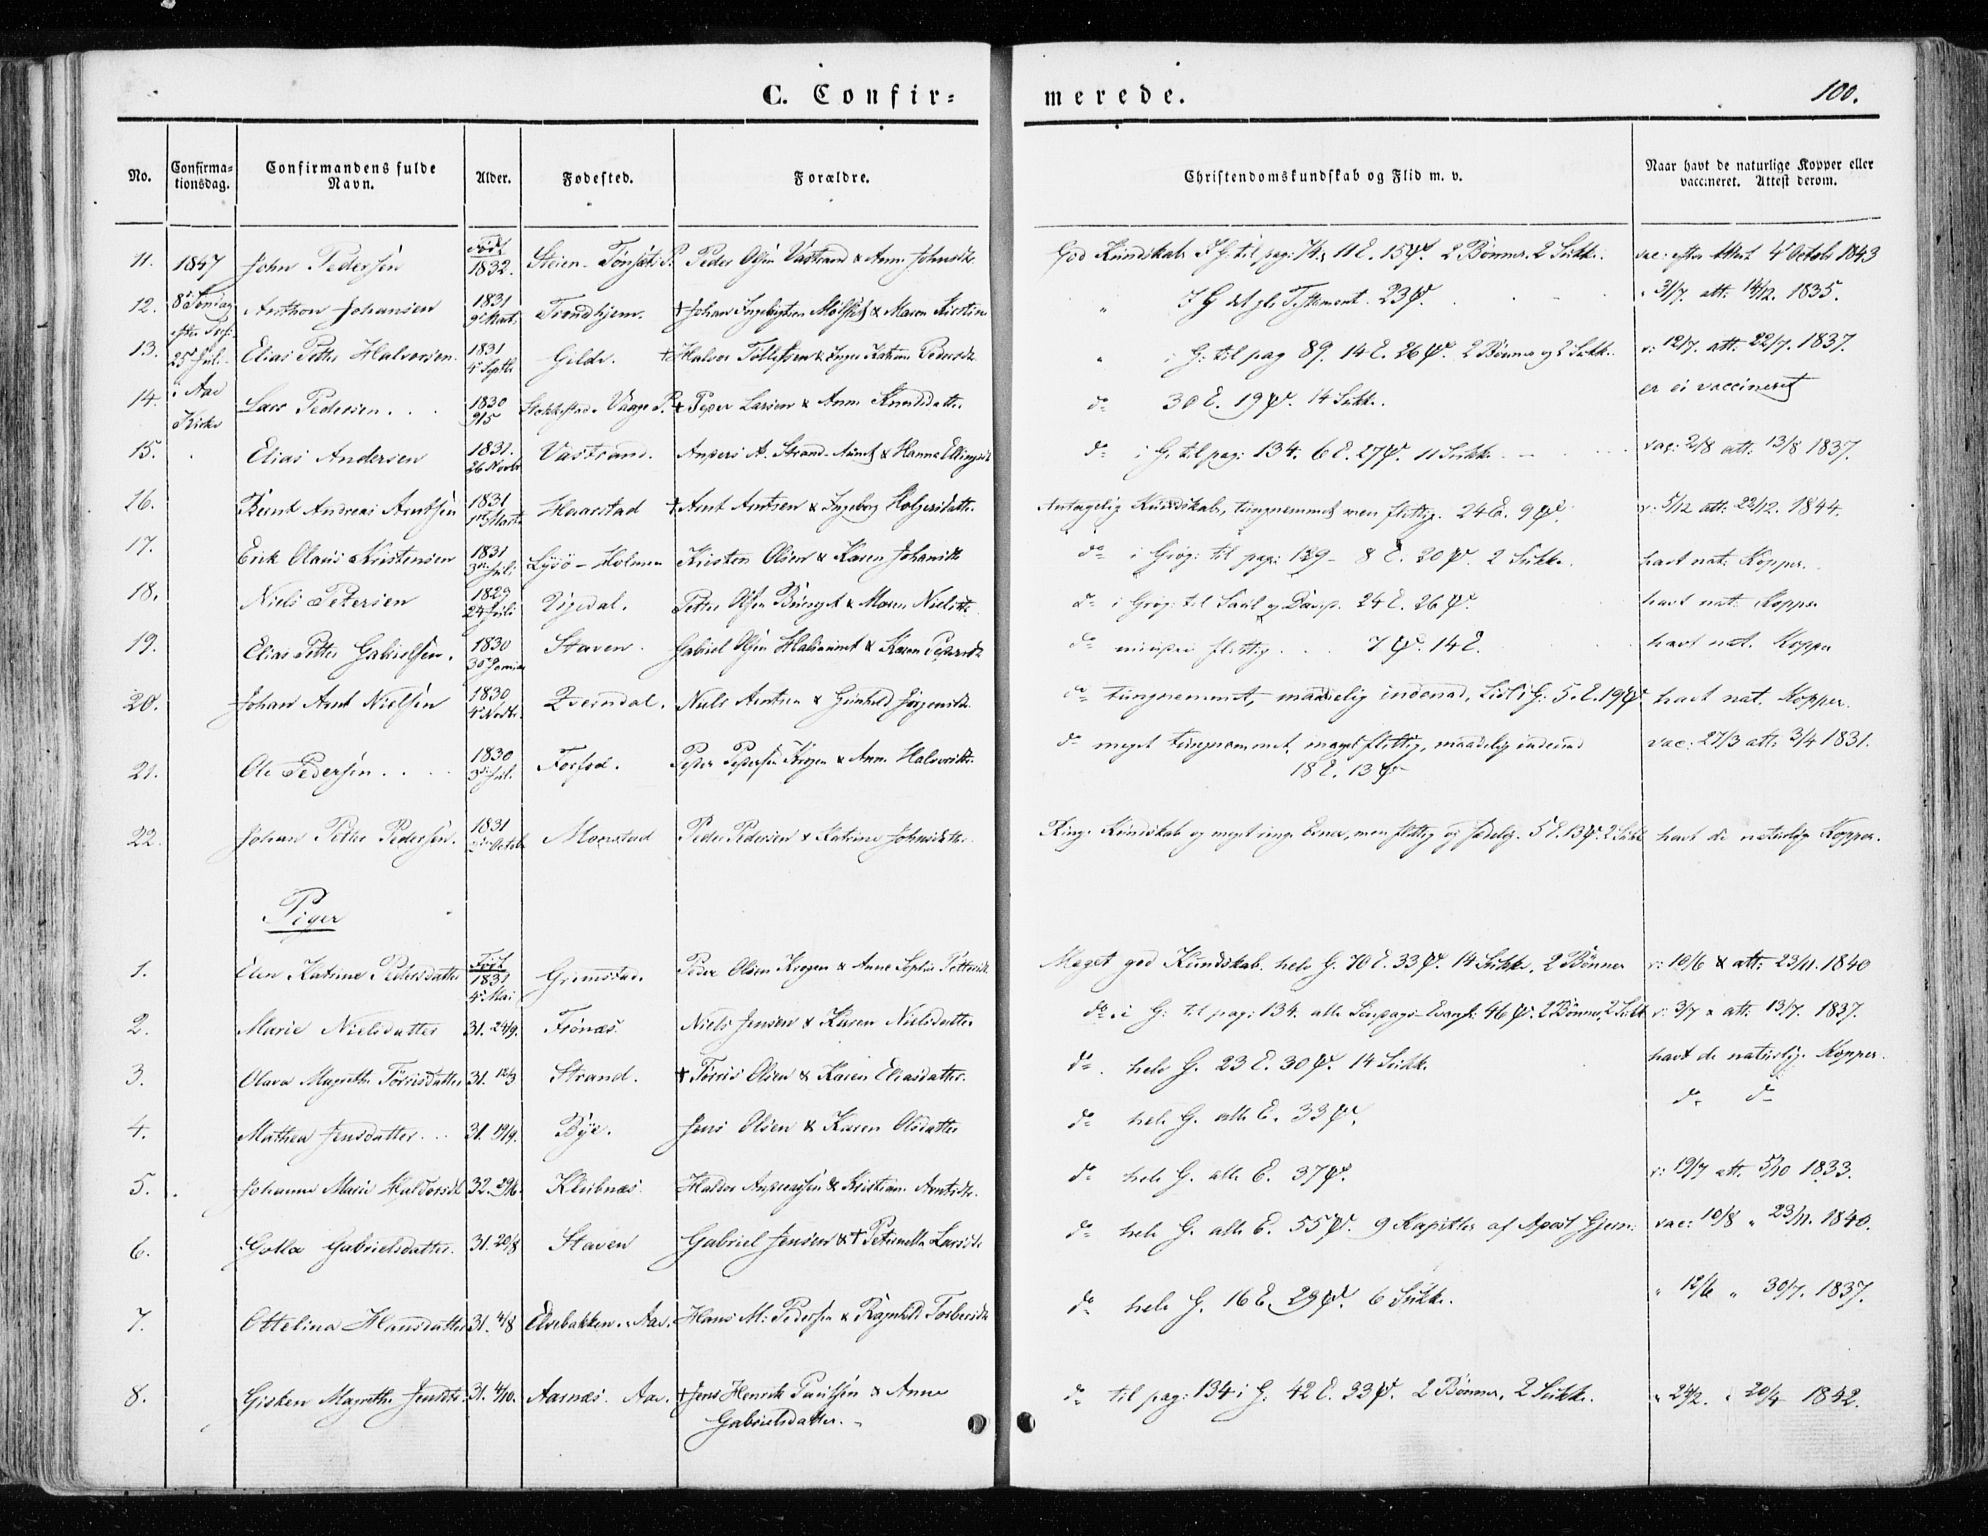 C. Confir=
merede.
100.
No.
Confirma=
tionsdag.
Confirmandens fulde
Navn.
Alder.
Fødested.
Forældre.
Christendomskundskab og Flid m. v.
Naar havt de naturlige Kopper eller
vaccineret. Attest derom.
11. 1847 John Pedersen Født 1832. Steien - Peder Olsen Vastrand & Ann Johnsdtr God Kundskab. I G. til pag: 74, 11 E. 15 ψ. 2 Bønner. 2 Stkk. vac: efter Attest 4 Octob 1843
12. Anthon Johansen 1831 9 Marts Trondhjem. + Johan & Maren Kirstin " I G det gl. Testament. 23 ψ. " 31/7. att: 14/12. 1835.
13. 25 Juli Elias Petter Halvorsen 1831 4 Septb Gilde. Halvor & Inger Katrine Pedersdtr " i G: til pag 89. 14 E. 26 ψ. 2 Bønner og 2 Stkk. v: 12/7. att: 22/7. 1837.
14. i Aae Kirke Lars Pedersen . . . 1830 9/5 + Peder Larsen & Ann Knudsdatter do 30 E. 19 ψ. 14 Stkk. er ei vaccineret
15. Elias Andersen 1831. 26 Novb Vastrand. Anders A. Strand & Hanna Ellingsdtr do i G. til pag: 134. 6 E. 27 ψ. 11 Stkk. vac: 2/8 att: 13/8 1837.
16. Bernt Andreas Arntsen 1831 Marts Haarstad + Arnt Arntsen & Ingeborg Holgersdatter Antagelig Kundskab, tungnemmet men flittig. 24 E. 9 ψ. v: 5/12 att: 22/12. 1844.
17. Erik Olaus Kristensen 1831 3 Juli Lysø - Holmen Kristen Olsen & Karen Johansdtr do i G: til pag: 139 - 8 E. 20 ψ. 2 Stkk. havt nat: Kopper.
18. Niels Petersen 1829 24 Juli Opedal. Petter Olsen & Maren Nielsdtr do i til Saul og David. 24 E. 26 ψ. havt nat: Kopper
19. Elias Petter Gabrielsen. 1830 Staven. Gabriel Olsen & Karen Pedersdtr do mindre flittig . . . 7 ψ. 14 E. havt nat. Kopper
20. Johan Arnt Nielsen 1830 4 Novb Eveindal. Niels Arntsen & Gunhild Jørgensdtr do tungnemmet, maadelig indenad. Lidt i G: 5. E. 19 ψ havt nat. Kopper.
21. Ole Pedersen . . . 1830 3 Juli Forfod. Peder Pedersen Krogen & Ann Halvorsdtr do meget tungnemmet, meget flittig, maadelig indenad
18 E. 13 ψ vac: 27/3 att: 3/4 1831.
22. Johan Petter Pedersen. 1831 Octob Moerstad Peder Pedersen & Katrine Johnsdatter Ring: Kundskab og meget ringe Evner, men flittig og sædelig. 5 E. 13 ψ. 2 Stkk havt de naturlige Kopper.
Piger
1. Elen Katrine Pedersdatter Født 1832 4 Mai Grønstad. Peder Olsen Krogen & Anne Sophie Pettersdtr Meget god Kundskab. hele G. 70 E. 33 ψ. 14 Stkk, 2 Bønner v: 10/6 & att: 23/11. 1840
2. Marie Nielsdatter 31. 24/9. Frønæs. Niels Jensen & Karen Nielsdatter do i G: til pag: 134. alle Søndags-Evang: 46 ψ. 2 Bønner, 2 Stkk v: 3/7 & att: 13/7. 1837.
3. Olava Magrethe Tørrisdatter 31. 12/3 Strand. + Tørris Olsen & Karen Eliasdatter. do. hele G. 23 E. 30 ψ. 14 Stkk. havt de naturlige Kopper.
4. Mathea Jensdatter . . . 31. 19/9. Bye. Jens Olsen & Karen Olsdatter do hele G. alle E. 33 ψ. do do
5. Johanna Marie Haldorsdtr 32. 29/6. Kleibnæs. Haldor Andreassen & Kristian Arntsdtr. do hele G. alle E. 37 ψ. v: 19/7 att. 5/10 1833.
6. Golla Gabrielsdatter. 31. 20/8 Staven Gabriel Jensen & + Petrnella Larsdtr do hele G. alle E. 55 ψ. 9 Kapitler af Apost Gjern: vac: 10/8 " 23/11. 1840.
7. Ottelina Hansdatter 31. 4/8 Elvebakken. Aae. Hans M: Pedersen & Ragnhild Torbersdtr do hele G. 16 E. 29 ψ. 6 Stkk. " 12/6 " 30/7. 1837.
8. Gisken Magrethe Jensdtr. 31. 4/10. Aarnæs. Aae. + Jens Henrik Paulsen & Anne
Gabrielsdatter. do til pag: 134 i G: 42 E. 23 ψ. 2 Bønner, 2 Stkk. " 24/2. " 20/4 1842.